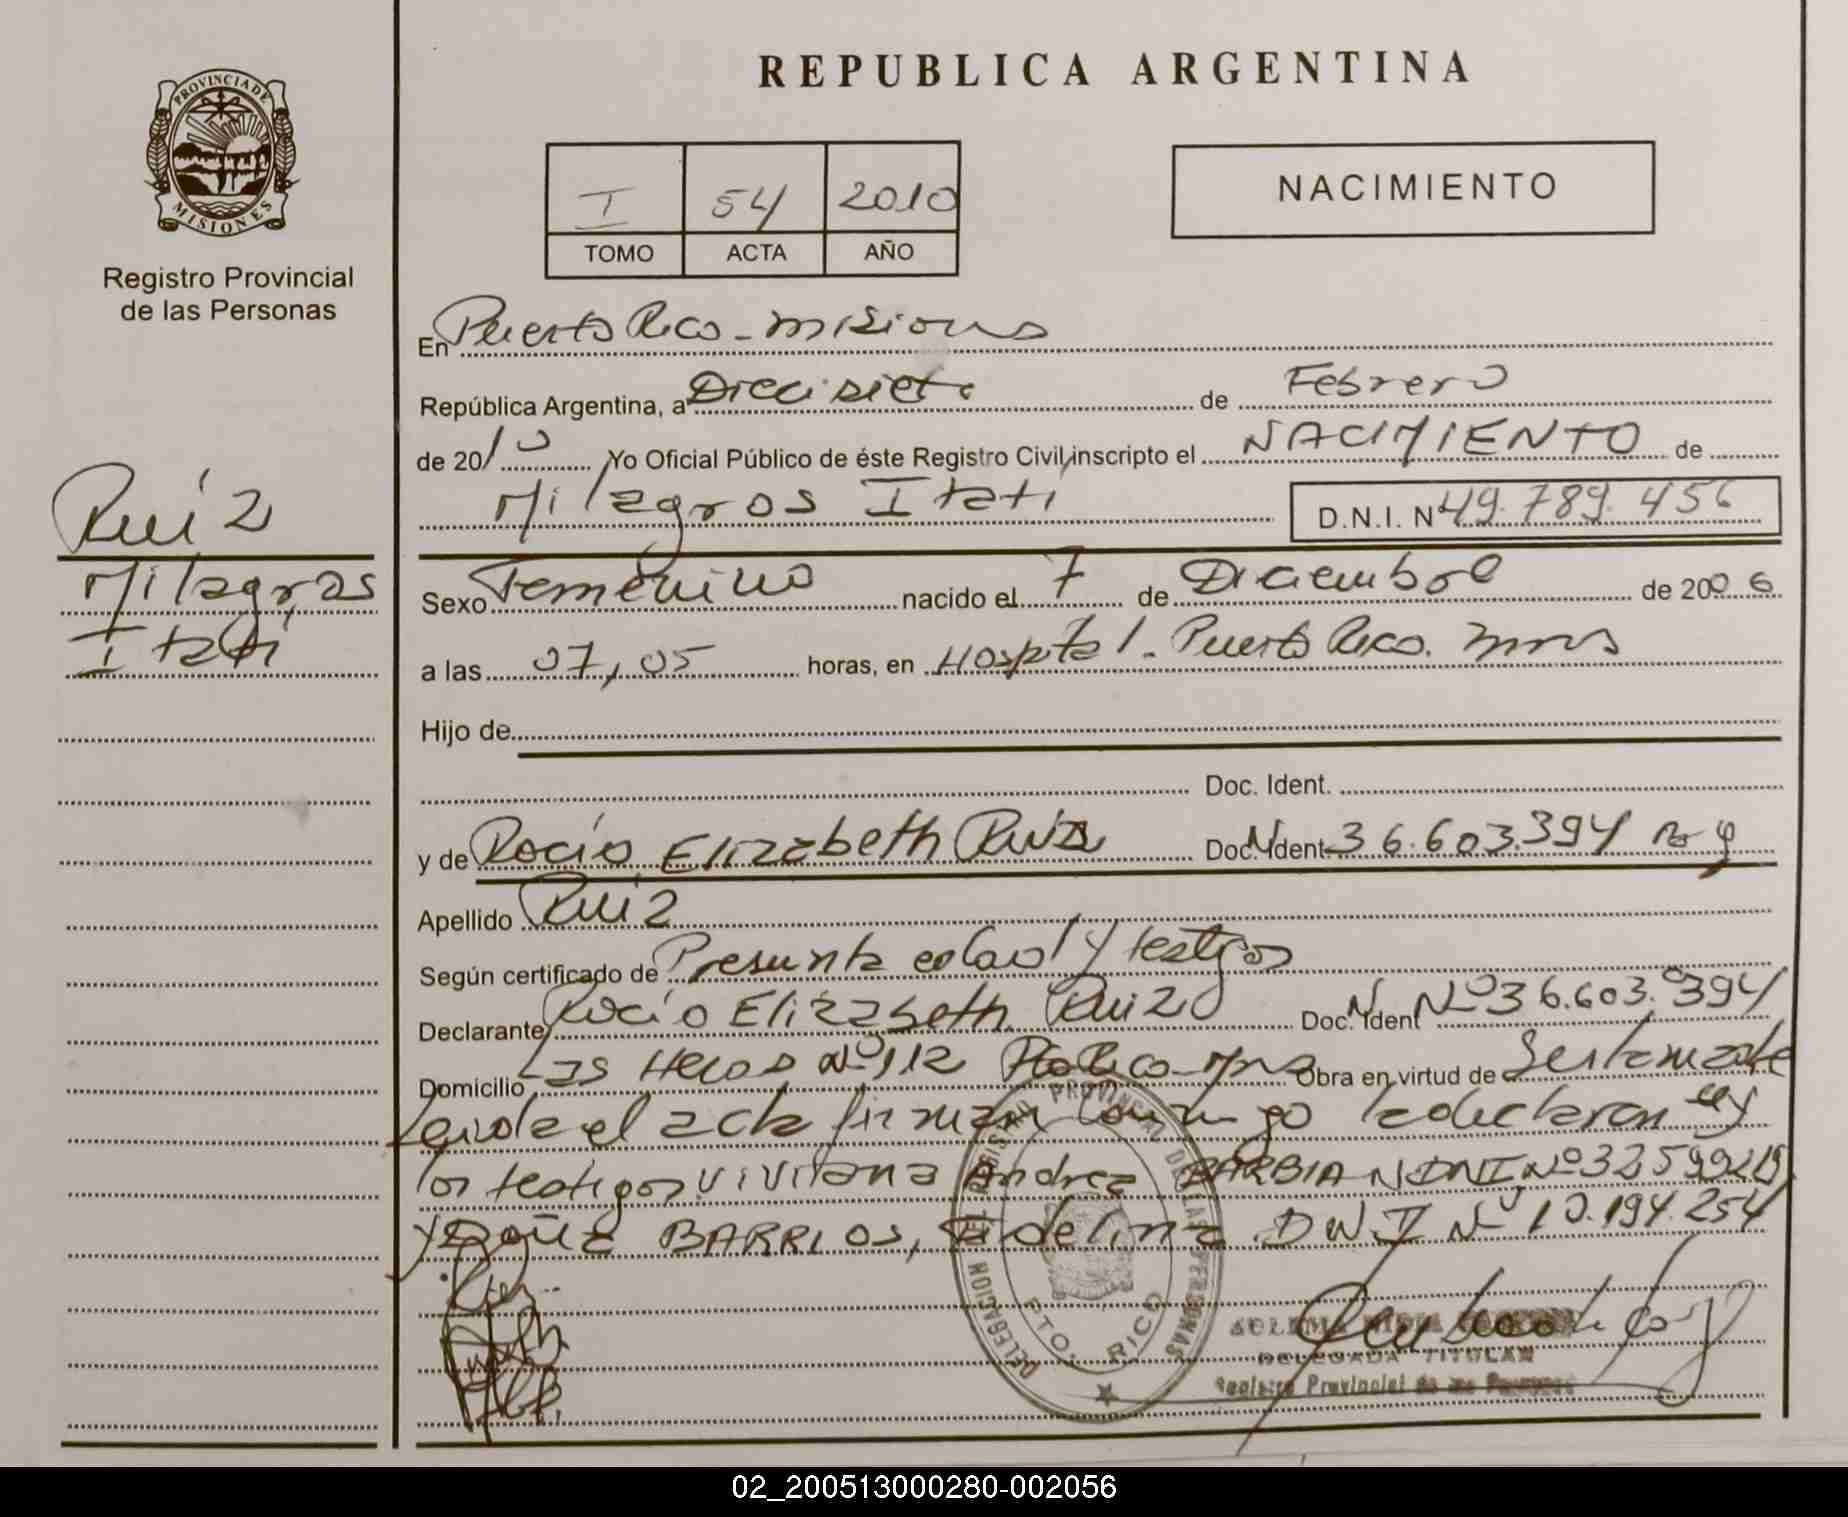 REPUBLICA ARGENTINA
PROVINCIA DE
MISIONES
Registro Provincial
de las Personas
I 54 2010
TOMO ACTA AÑO
NACIMIENTO
En Puerto Rico - Misiones
República Argentina, a Diecisiete de Febrero
de 2010 Yo Oficial Público de éste Registro Civil, inscripto el NACIMIENTO de
Milagros Itati D.N.I. Nº 49.789.456
Ruiz
Milagros
Itati
Sexo Femenino nacido el 7 de Diciembre de 2006
a las 07,05 horas, en Hospital - Puerto Rico. Mnes
Hijo de
Doc. Ident.
y de Rocío Elizabeth Ruiz Doc. Ident 36.603.394
Apellido Ruiz
Según certificado de Presunta edad y testigos
Declarante Rocío Elizabeth Ruiz Doc. Ident Nº 36.603.394
Domicilio Las Heras Nº 112 Pto Rico - Mnes Obra en virtud de
Leida el acta firman conmigo la declarante y
los testigos Viviana Andrea BARBIAN DNI Nº
y BARRIOS, Fidelina DNI Nº 10.194.254
DELEGACION DEL REGISTRO PROVINCIAL DE LAS PERSONAS
PTO. RICO
DELEGADA TITULAR
Registro Provincial de las Personas
02_200513000280-002056